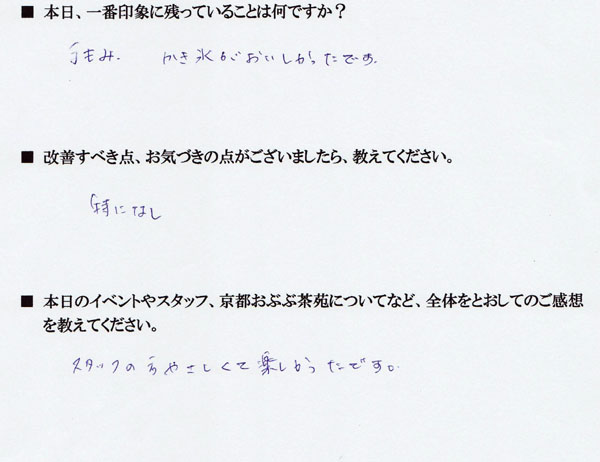 ■ 本日、一番印象に残っていることは何ですか？
手もみ. かき氷がおいしかったです.
■ 改善すべき点、お気づきの点がございましたら、教えてください。
特になし
■ 本日のイベントやスタッフ、京都おぶぶ茶苑についてなど、全体をとおしてのご感想
を教えてください。
スタッフの方やさしくて楽しかったです。